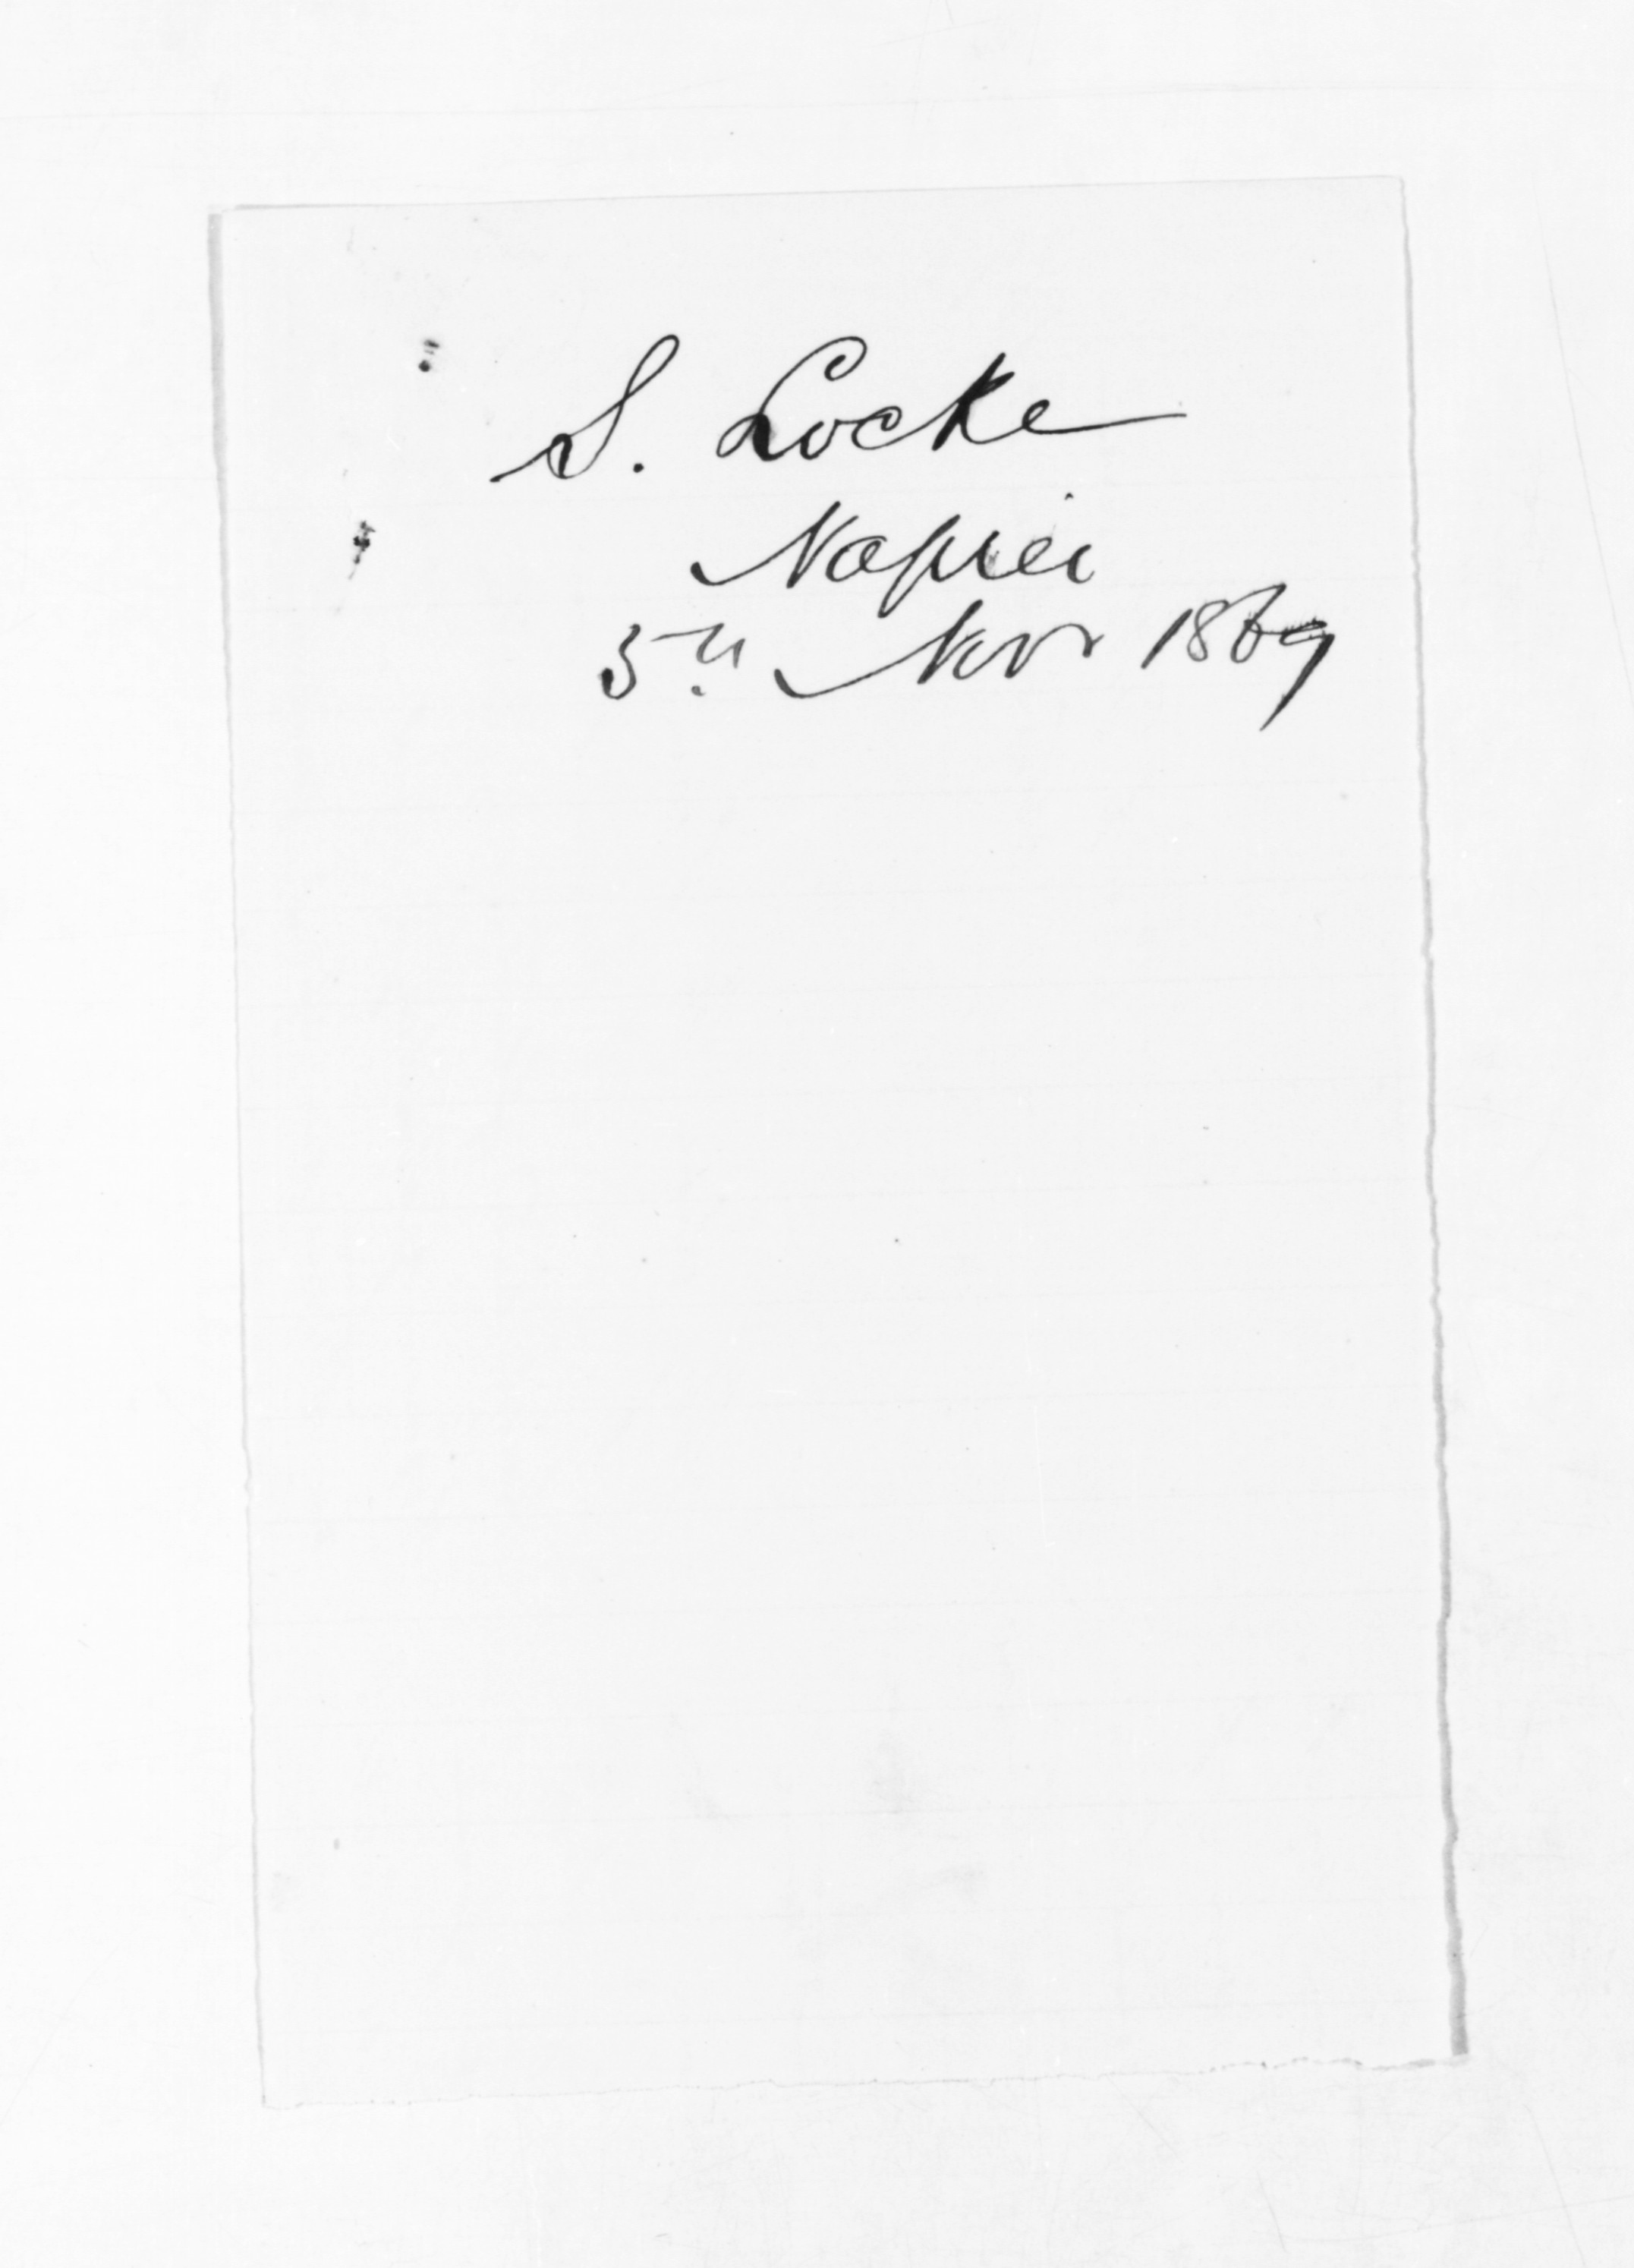 S. Locke
Napier
5th Nov 1869